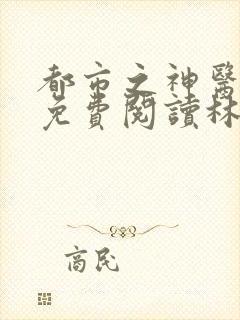 都市之神醫
免費閱讀林
商民